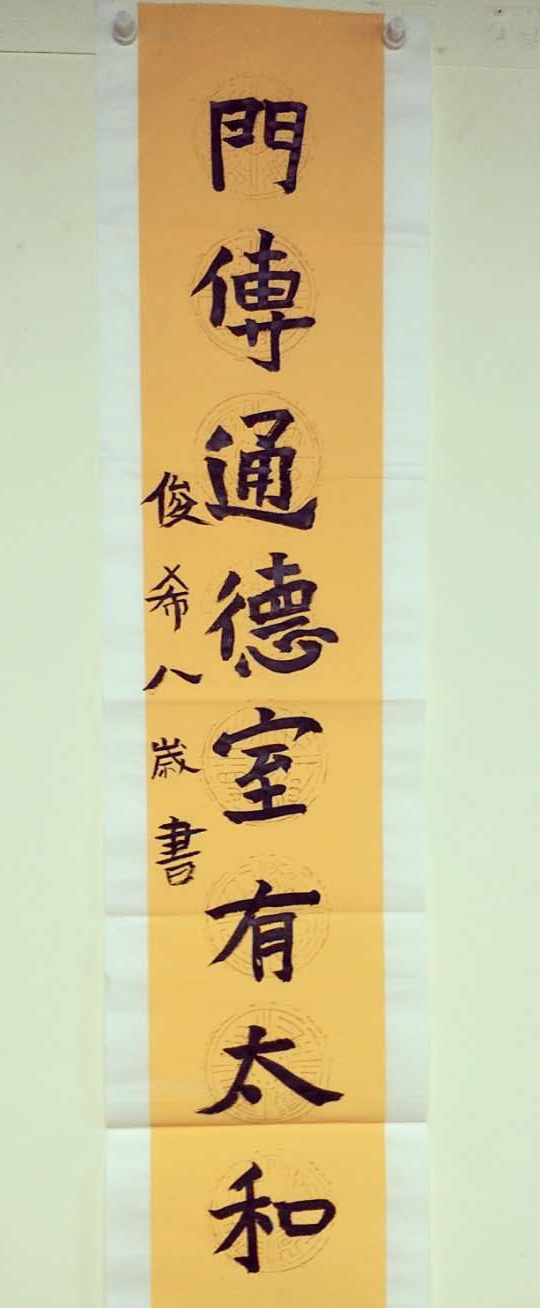 門傳通德室有太和
俊希八歲書